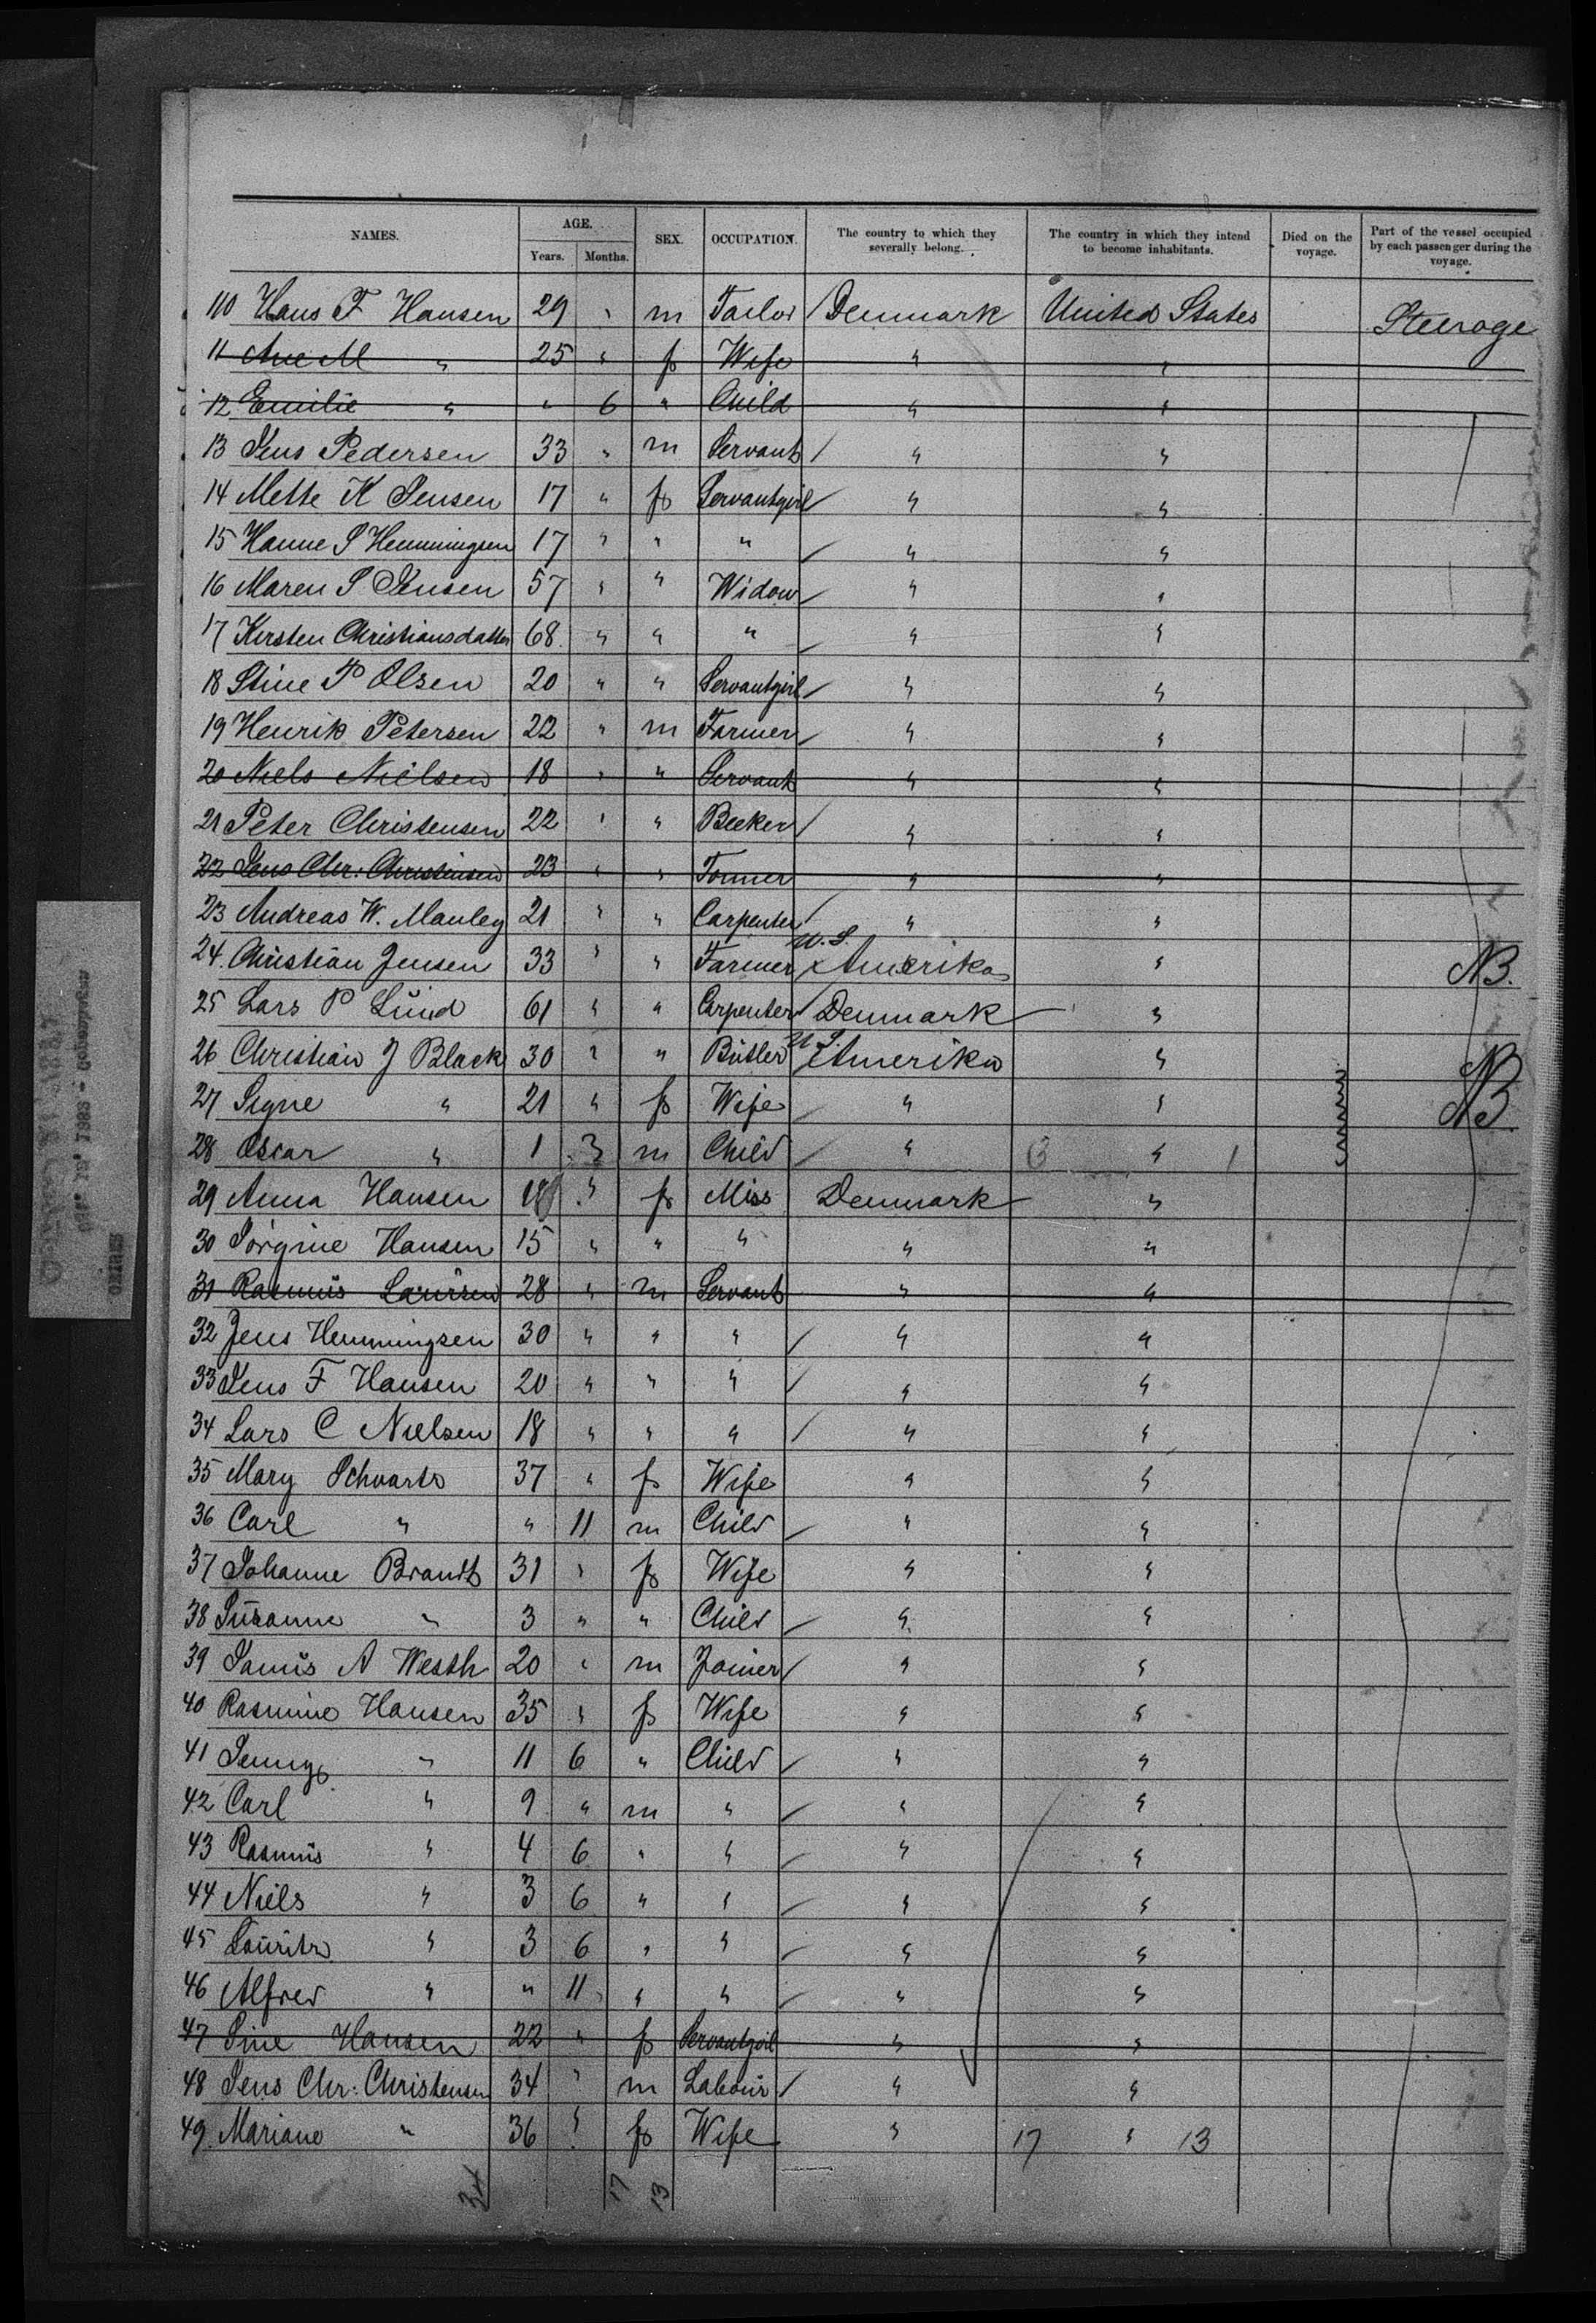 NAMES. AGE. Years. Months. SEX. OCCUPATION. The country to which they severally belong. The country in which they intend to become inhabitants. Died on the voyage. Part of the vessel occupied by each passenger during the voyage.
110 Hans F Hansen 29 " m Tailor Denmark United States Steerage
11 Ane M " 25 " f Wife " "
12 Emilie " " 6 " Child " "
13 Jens Pedersen 33 " m Servant " "
14 Mette K Jensen 17 " f Servantgirl " "
15 Hanne S Hemmingsen 17 " " " " "
16 Maren S Jensen 57 " " Widow " "
17 Kirsten Christiansdatter 68 " " " " "
18 Stine P Olsen 20 " " Servantgirl " "
19 Henrik Petersen 22 " m Farmer " "
20 Niels Nielsen 18 " " Servant " "
21 Peter Christensen 22 " " Beeker " "
22 Jens Chr: Christensen 23 " " Former " "
23 Andreas W. Manley 21 " " Carpenter " "
24 Christian Jensen 33 " " Farmer U.S. Amerika " NB.
25 Lars P Lund 61 " " Carpenter Denmark "
26 Christian J Black 30 " " Butler U.S. Amerika "
27 Signe " 21 " f Wife " " NB
28 Oscar " 1 3 m Child " 6 " 1
29 Anna Hansen 18 " f Miss Denmark "
30 Jörgine Hansen 15 " " " " "
31 Rasmus Laursen 28 " m Servant " "
32 Jens Hemmingsen 30 " " " " "
33 Jens F Hansen 20 " " " " "
34 Lars C Nielsen 18 " " " " "
35 Mary Schvartz 37 " f Wife " "
36 Carl " " 11 m Child " "
37 Johanne Brandt 31 " f Wife " "
38 Susanne " 3 " " Child " "
39 A Westh 20 " m Joiner " "
40 Rasmine Hansen 35 " f Wife " "
41 Jenny " 11 6 " Child " "
42 Carl " 9 " m " " "
43 Rasmus " 4 6 " " " "
44 Niels " 3 6 " " " "
45 Lauritz " 3 6 " " " "
46 Alfred " " 11 " " " "
47 Sine Hansen 22 " f Servantgirl " "
48 Jens Chr: Christensen 34 " m Labour " "
49 Mariane " 36 " f Wife " 17 " 13
34 17 13